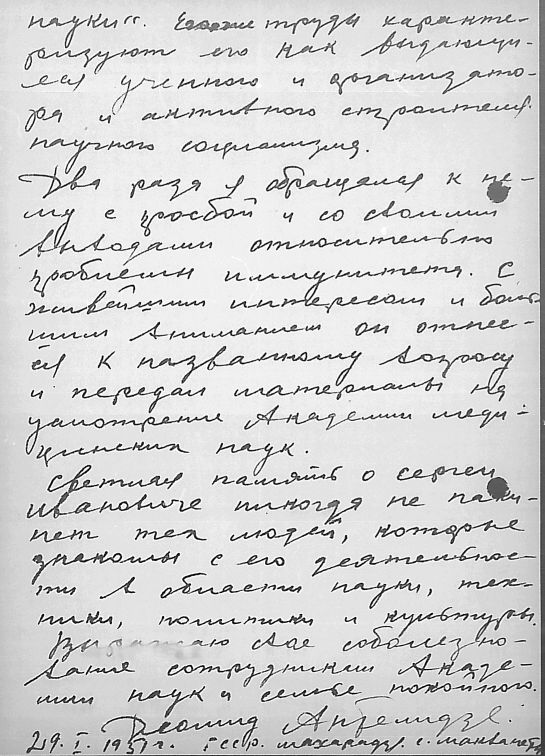 науки". труды характе-
ризуют его как выдающи-
еся ученного и организато-
ра и активного строителя
научного социализма.
Два раза я обращался к не-
му с просьбой и со своими
выводами относительно
проблемы иммунитета. С
живейшим интересом и боль-
шим вниманием он отнес-
ся к названному вопросу
и передал материалы на
усмотрение Академии меди-
цинских наук.
Светлая память о Сергеи
Ивановиче никогда не поки-
нет тех людей, которые
знакомы с его деятельнос-
ти в области науки, тех-
ники, политики и культуры.
Выражаю свое соболезно-
вание сотрудникам Акаде-
мии наук и семье покойного.
Леонид Ангелидзе.
29. I. 1951 г. ГССР. Махарадзе с.